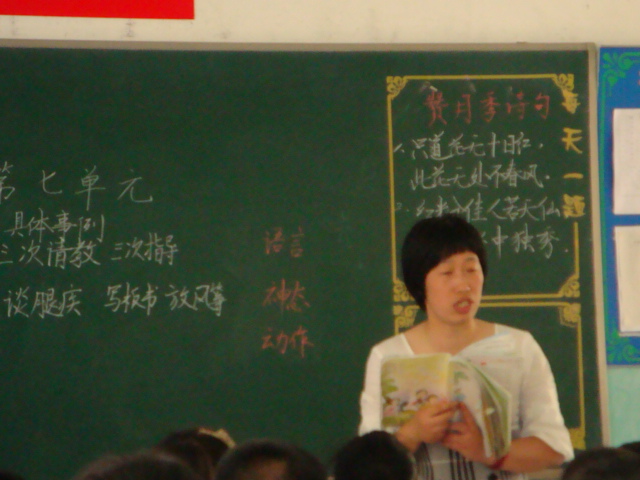 第七单元
具体事例
三次请教 三次指导
谈腿疾 写板书 放风筝
语言
神态
动作
赞月季诗句
每天一题
1、只道花无十日红，
此花无处不春风。
佳人若天仙
中独秀.